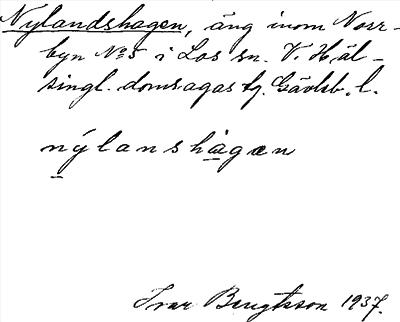 Nylandshagen, äng inom Norr-
byn No 5 i Los sn. V. Häl-
singl. domsagas tg. Gävleb. l.
nýlanshàgæn
Ivar Bengtsson 1937.